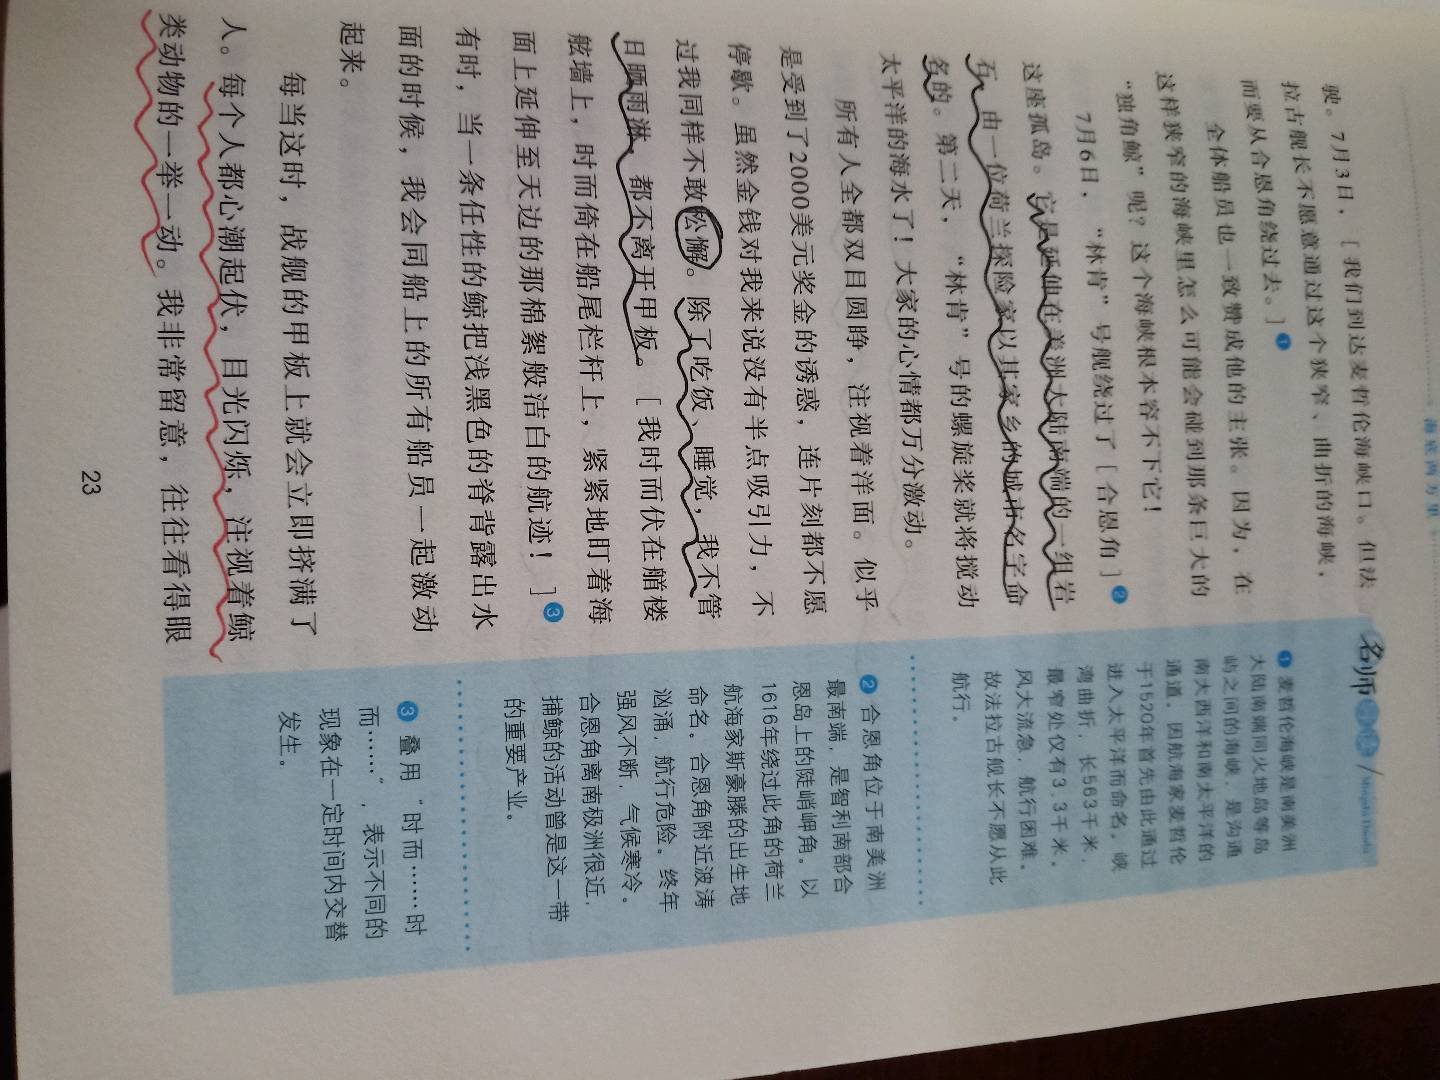 海底两万里
驶。7月3日，［我们到达麦哲伦海峡口。但法
拉古舰长不愿意通过这个狭窄、曲折的海峡，
而要从合恩角绕过去。］❶
全体船员也一致赞成他的主张。因为，在
这样狭窄的海峡里怎么可能会碰到那条巨大的
“独角鲸”呢？这个海峡根本容不下它！
7月6日，“林肯”号舰绕过了［合恩角］❷
这座孤岛。它是延伸在美洲大陆南端的一组岩
石，由一位荷兰探险家以其家乡的城市名字命
名的。第二天，“林肯”号的螺旋桨就将搅动
太平洋的海水了！大家的心情都万分激动。
所有人全都双目圆睁，注视着洋面。似乎
是受到了2000美元奖金的诱惑，连片刻都不愿
停歇。虽然金钱对我来说没有半点吸引力，不
过我同样不敢松懈。除了吃饭、睡觉，我不管
日晒雨淋，都不离开甲板。［我时而伏在艏楼
舷墙上，时而倚在船尾栏杆上，紧紧地盯着海
面上延伸至天边的那棉絮般洁白的航迹！］❸
有时，当一条任性的鲸把浅黑色的脊背露出水
面的时候，我会同船上的所有船员一起激动
起来。
每当这时，战舰的甲板上就会立即挤满了
人。每个人都心潮起伏，目光闪烁，注视着鲸
类动物的一举一动。我非常留意，往往看得眼
23
名师
❶ 麦哲伦海峡是南美洲
大陆南端同火地岛等岛
屿之间的海峡，是沟通
南大西洋和南太平洋的
通道。因航海家麦哲伦
于1520年首先由此通过
进入太平洋而命名。峡
湾曲折，长563千米，
最窄处仅有3.3千米。
风大流急，航行困难，
故法拉古舰长不愿从此
航行。
❷ 合恩角位于南美洲
最南端，是智利南部合
恩岛上的陡峭岬角。以
1616年绕过此角的荷兰
航海家斯豪滕的出生地
命名。合恩角附近波涛
汹涌，航行危险。终年
强风不断，气候寒冷。
合恩角离南极洲很近，
捕鲸的活动曾是这一带
的重要产业。
❸ 叠用“时而……时
而……”，表示不同的
现象在一定时间内交替
发生。